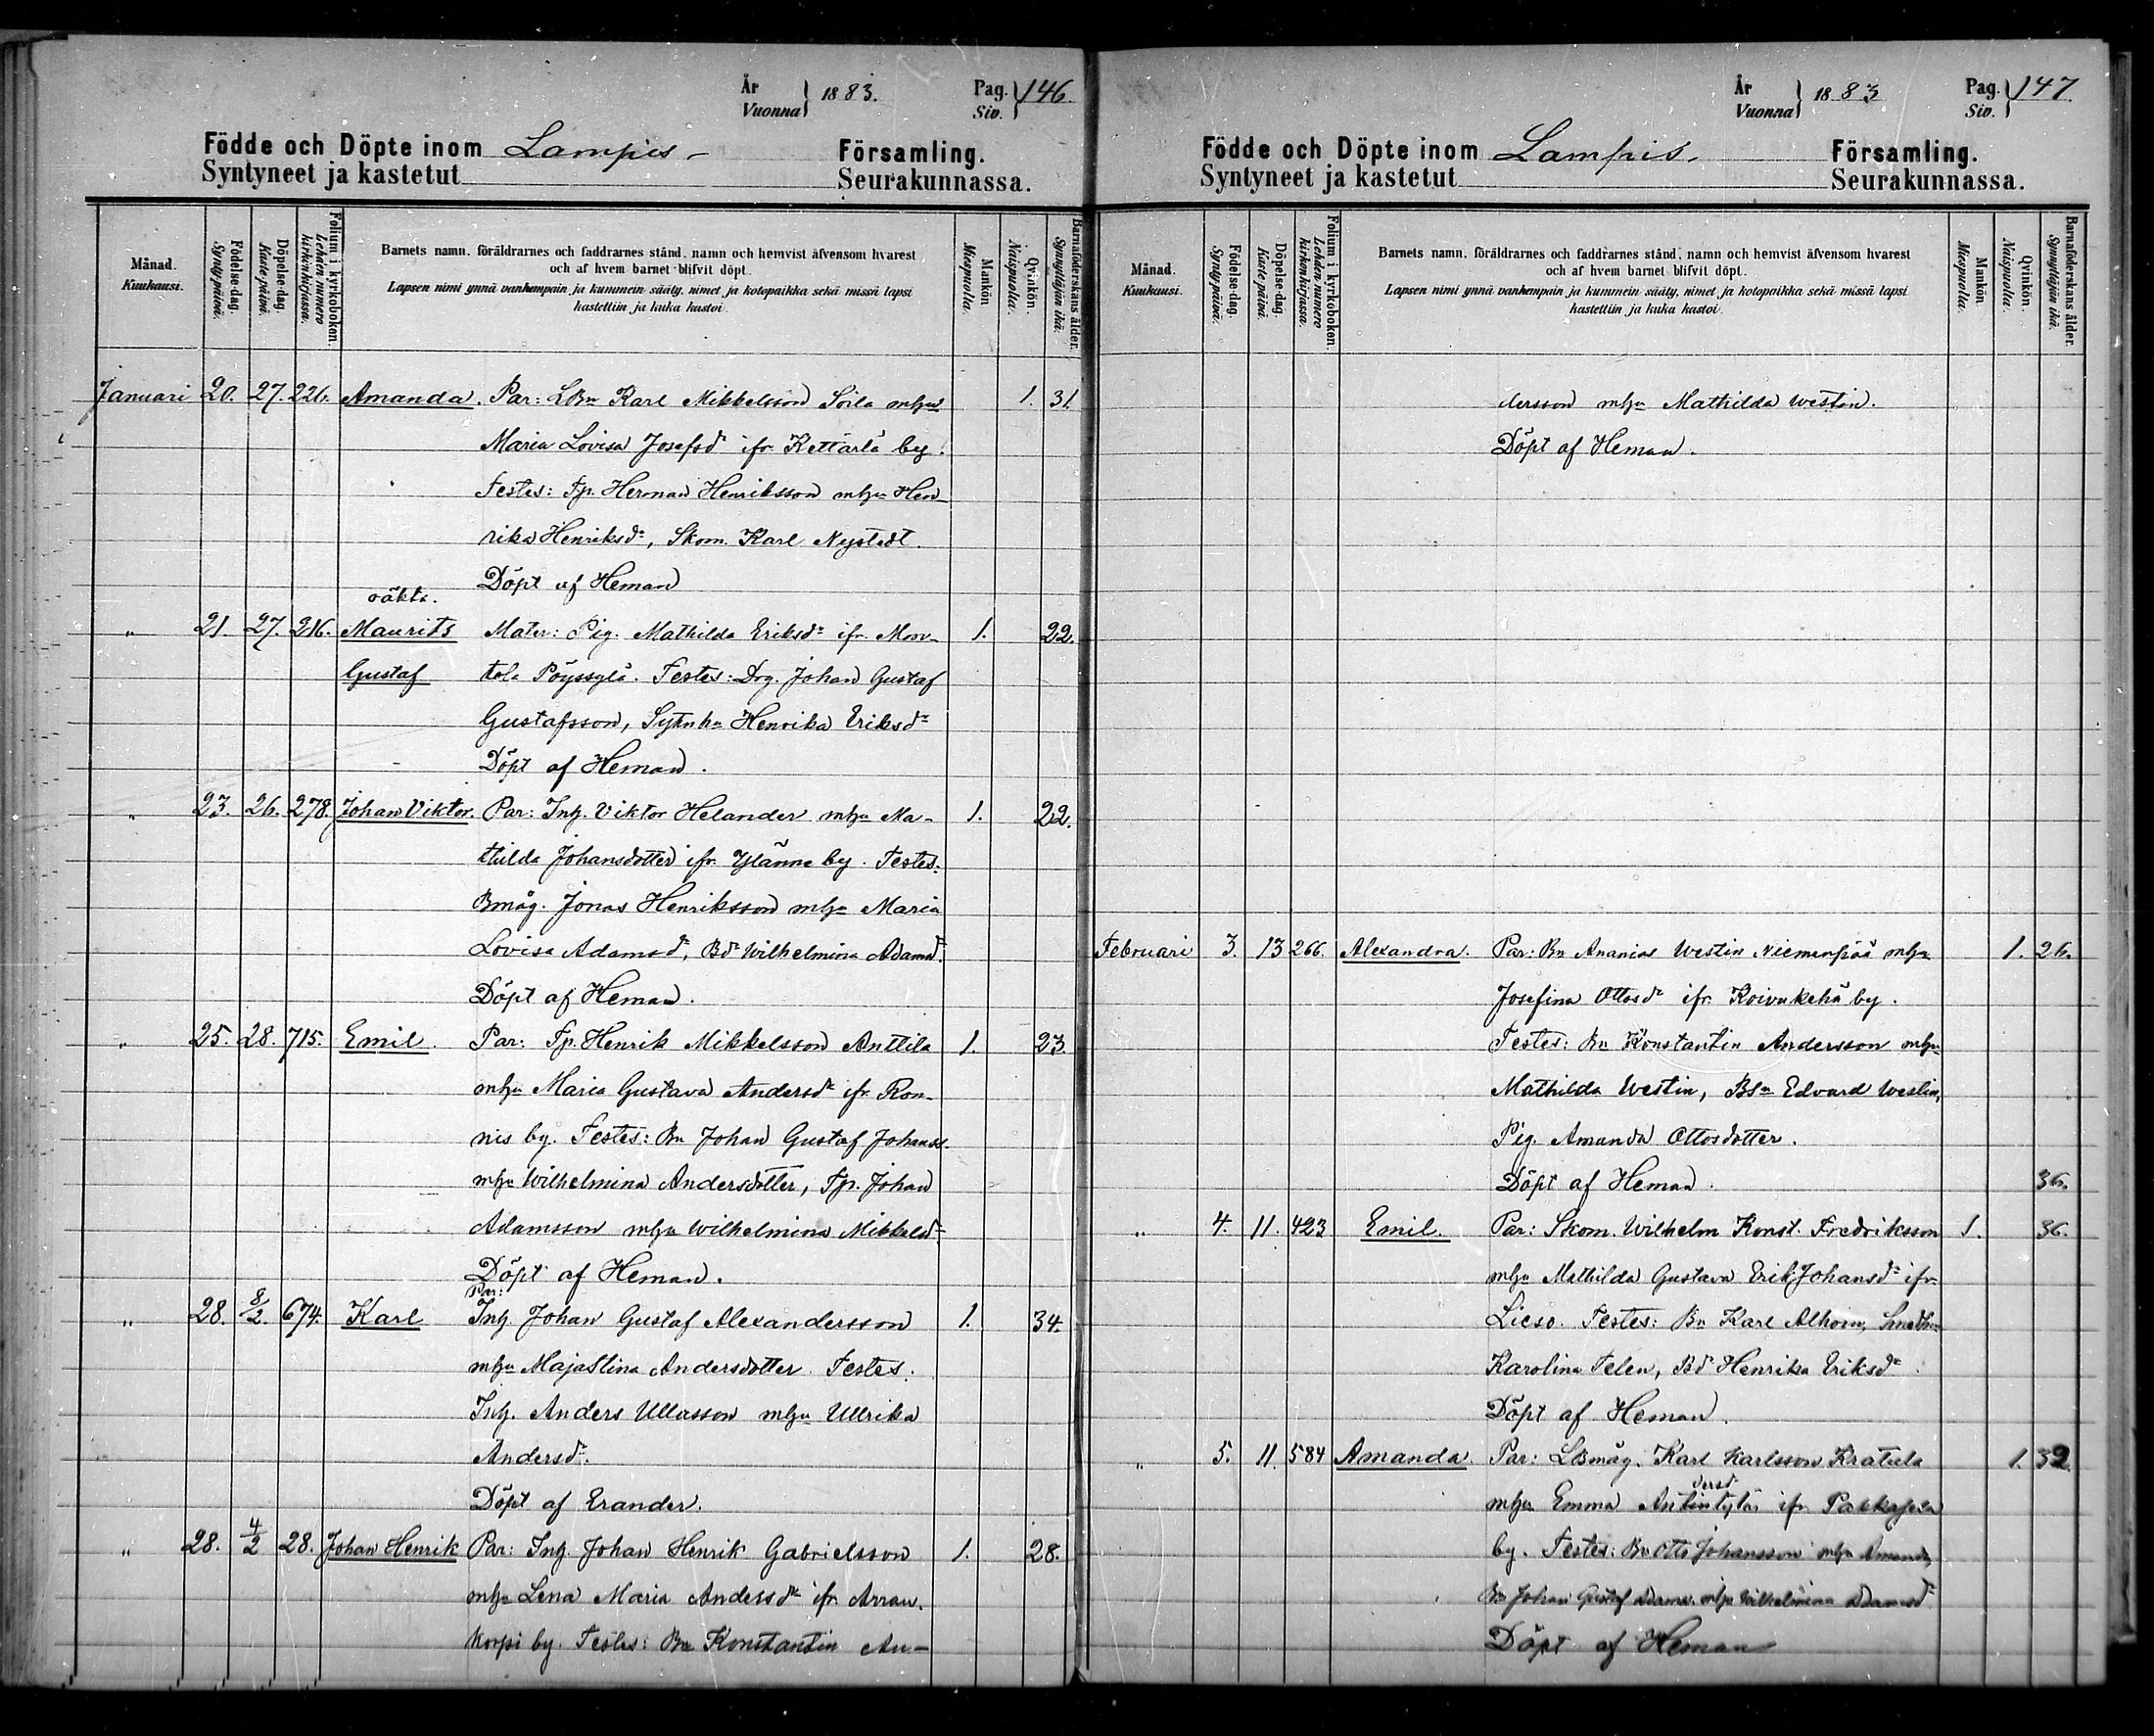 År
Vuonna 1883.
Pag.
Siv. 146.
Födde och Döpte inom Lampis Församling.
Syntyneet ja kastetut Seurakunnassa.
Månad.
Kuukausi.
Födelse-dag.
Syntypäivä.
Döpelse-dag.
Kastepäivä.
Folium i kyrkoboken.
Lehden numero
kirkonkirjassa.
Barnets namn, föräldrarnes och faddrarnes stånd, namn och hemvist äfvensom hvarest
och af hvem barnet blifvit döpt.
Lapsen nimi ynnä vanhempain ja kummein sääty, nimet ja kotopaikka sekä missä lapsi
kastettiin ja kuka kastoi.
Mankön
Miespuolia.
Qvinkön.
Naispuolia.
Barnaföderskans ålder.
Synnyttäjän ikä.
Januari 20. 27. 226. Amanda. Par: LBn Karl Mikkelsson Soila mhu 1. 31.
Maria Lovisa Josefsdr ifr. Kettärlä by.
Testes: Tp. Herman Henriksson mhu Hen-
rika Henriksdr, Skom. Karl Nystedt.
Döpt af Heman
oäkta.
" 21. 27. 216. Maurits Mater: Pig. Mathilda Eriksdr ifr. Mon- 1. 22.
Gustaf tola Pöyssylä. Testes: Drg. Johan Gustaf
Gustafsson, Henrika Eriksdr
Döpt af Heman.
" 23. 26. 278. Johan Viktor. Par: Inh. Viktor Helander mhu Ma- 1. 22.
thilda Johansdotter ifr. Ylänne by. Testes:
Bmåg. Jonas Henriksson mhu Maria
Lovisa Adamsdr, Bdr Wilhelmina Adamsdr.
Döpt af Heman.
" 25. 28. 715. Emil. Par: Tp. Henrik Mikkelsson Anttila 1. 23.
mhu Maria Gustava Andersdr ifr. Ron-
nis by. Testes: Bn Johan Gustaf Johanss.
mhu Wilhelmina Andersdotter, Tp. Johan
Adamsson mhu Wilhelmina Mikkelsdr
Döpt af Heman.
Par:
" 28. 8/2. 674. Karl Inh. Johan Gustaf Alexandersson 1. 34.
mhu Maja Stina Andersdotter. Testes:
Inh. Anders Ullasson mhu Ullrika
Andersdr.
Döpt af Erander.
" 28. 4/2 28. Johan Henrik Par: Inh. Johan Henrik Gabrielsson 1. 28.
mhu Lena Maria Andersdr ifr. Arran-
korpi by. Testes: Bn Konstantin An-
År
Vuonna 1883
Pag.
Siv. 147.
Födde och Döpte inom Lampis. Församling.
Syntyneet ja kastetut Seurakunnassa.
Månad.
Kuukausi.
Födelse-dag.
Syntypäivä.
Döpelse-dag.
Kastepäivä.
Folium i kyrkoboken.
Lehden numero
kirkonkirjassa.
Barnets namn, föräldrarnes och faddrarnes stånd, namn och hemvist äfvensom hvarest
och af hvem barnet blifvit döpt.
Lapsen nimi ynnä vanhempain ja kummein sääty, nimet ja kotopaikka sekä missä lapsi
kastettiin ja kuka kastoi.
Mankön
Miespuolia.
Qvinkön.
Naispuolia.
Barnaföderskans ålder.
Synnyttäjän ikä.
dersson mhu Mathilda Westin.
Döpt af Heman.
Februari 3. 13 266. Alexandra. Par: Bn Ananias Westin Niemenpää mhu 1. 26.
Josefina Ottosdr ifr. Koivukehä by.
Testes: Bn Konstantin Andersson mhu
Mathilda Westin, Bsn Edvard Westin,
Pig. Amanda Ottosdotter.
Döpt af Heman. 36.
" 4. 11. 423 Emil. Par: Skom. Wilhelm Konst. Fredriksson 1. 36.
mhu Mathilda Gustava Erik Johansdr ifr.
Lieso. Testes: Bn Karl Alhoin,
Karolina Telen, Bdr Henrika Eriksdr.
Döpt af Heman.
" 5. 11. 584 Amanda. Par: LBmåg. Karl Karlsson Kratula 1. 32.
mhu Emma ifr. Pakkasela
by. Testes: Bn Otto Johansson mhu Amanda,
Bn Johan Gustaf Adams. mhu Wilhelmina Adamsdr
Döpt af Heman